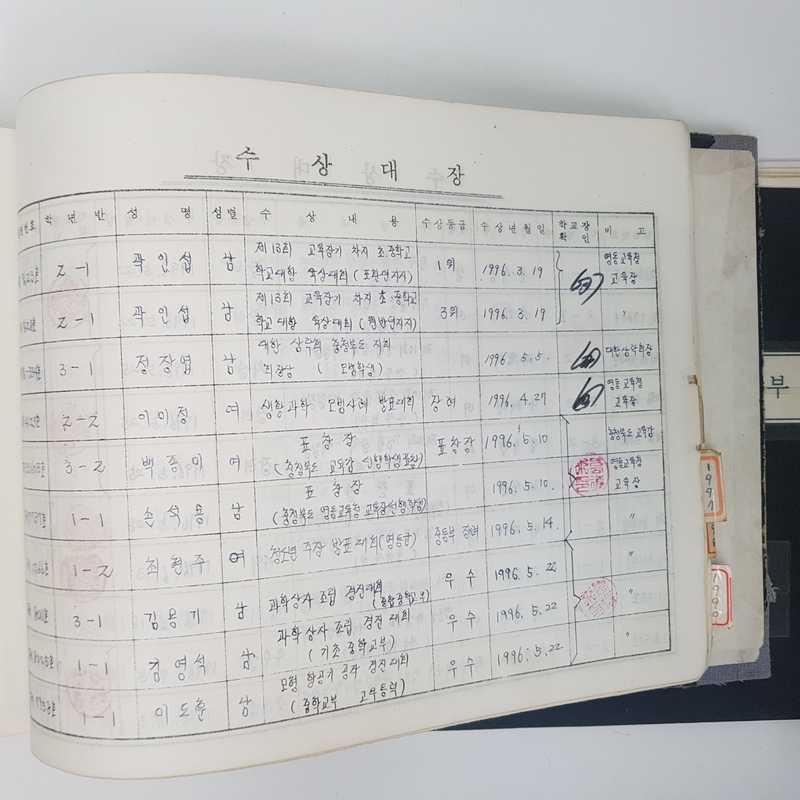 수 상 대 장
번호 학 년 반 성 명 성별 수 상 내 용 수상등급 수 상 년 월 일 학교장 확 인 비 고
2-1 곽인섭 남 제13회 교육장기 차지 초·중학교 1위 1996. 3. 19 영동교육청
학교대항 육상대회 교육장
2-1 곽인섭 남 제13회 교육장기 차지 초·중학교 3위 1996. 3. 19 〃
학교대항 육상대회
3-1 정장엽 남 대한 삼락회 충청북도 지회 1996. 5. 5. 대한삼락회장
회장상 ( 모범학생 )
2-2 이미정 여 생활과학 모범사례 발표대회 장려 1996. 4. 27 영동교육청
교육장
3-2 백종미 여 표 창 장 표창장 1996. 5. 10 충청북도 교육감
(충청북도 교육감 선행학생표창)
1-1 손석용 남 표 창 장 1996. 5. 10. 영동교육청
(충청북도 영동교육청 교육장선행학생) 교육장
1-2 최현주 여 청소년 주장 발표대회(영동군) 중등부 장려 1996. 5. 14. 〃
3-1 김용기 남 과학상자 조립 경진대회 우수 1996. 5. 22 〃
(종합중학교부)
1-1 김영석 남 과학상자 조립 경진대회 우수 1996. 5. 22 〃
(기초 중학교부)
1-1 이도훈 남 모형 항공기 공작 경진대회 우수 1996. 5. 22 〃
(중학교부 고무동력)
1997
1999
부